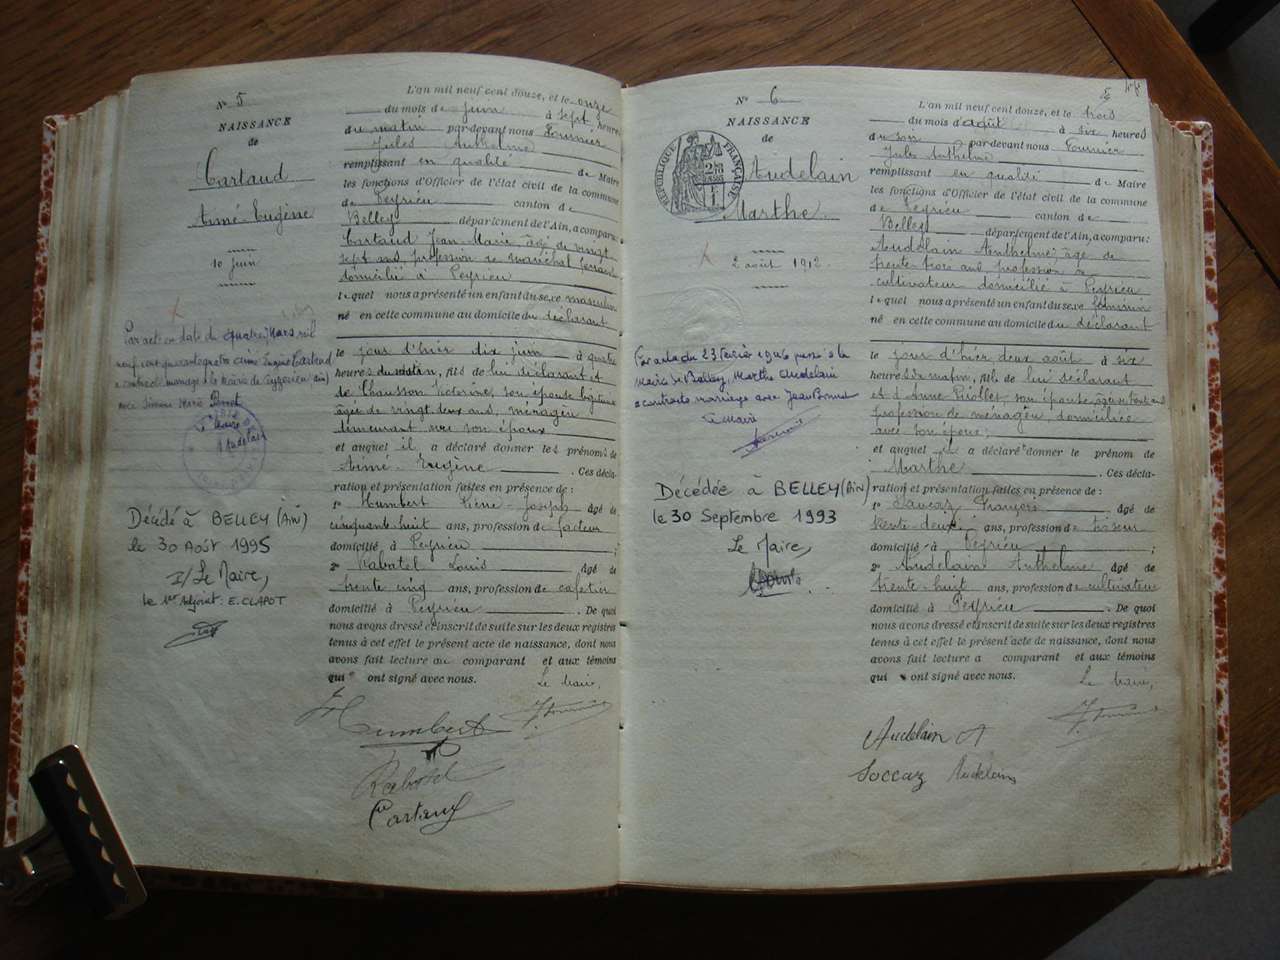 N° 5
NAISSANCE
de
Cartaud
Aimé Eugène
10 juin
Par acte en date du quatre Mars mil
neuf cent quarante quatre Aimé Eugène Cartaud
a contracté mariage à la Mairie de (Ain)
avec Marie Perret
Le Maire
Audelain
Décédé à BELLEY (AIN)
le 30 Août 1995
P/Le Maire,
le 1er Adjoint : E. CLAPOT
L'an mil neuf cent douze, et le onze
du mois de juin à sept heures
du matin par-devant nous Fournier
Jules Anthelme
remplissant en qualité de Maire
les fonctions d'Officier de l'état civil de la commune
de Peyrieu canton de
Belley département de l'Ain, a comparu :
Cartaud Jean Marie âgé de vingt
sept ans, profession de maréchal ferrant
domicilié à Peyrieu
lequel nous a présenté un enfant du sexe masculin
né en cette commune au domicile du déclarant
le jour d'hier dix juin à quatre
heures du matin, fils de lui déclarant et
de Chausson Victorine, son épouse légitime
âgée de vingt deux ans, ménagère
demeurant avec son époux
et auquel il a déclaré donner les prénoms de
Aimé Eugène . Ces décla-
ration et présentation faites en présence de :
1° Humbert Pierre Joseph âgé de
cinquante huit ans, profession de facteur
domicilié à Peyrieu ;
2° Rabatel Louis âgé de
trente cinq ans, profession de cafetier
domicilié à Peyrieu . De quoi
nous avons dressé et inscrit de suite sur les deux registres
tenus à cet effet le présent acte de naissance, dont nous
avons fait lecture au comparant et aux témoins
qui ont signé avec nous. Le Maire,
Humbert
Rabatel
Cartaud
N° 6
NAISSANCE
de
RÉPUBLIQUE FRANÇAISE
Audelain
Marthe
2 août 1912.
Par acte du 23 Février 1946 passé à la
Mairie de Belley, Marthe Audelain
a contracté mariage avec Jean Bonnet
Le Maire
Décédée à BELLEY (AIN)
le 30 Septembre 1993
Le Maire,
L'an mil neuf cent douze, et le trois
du mois d'août à six heures
du soir par-devant nous Fournier
Jules Anthelme
remplissant en qualité de Maire
les fonctions d'Officier de l'état civil de la commune
de Peyrieu canton de
Belley département de l'Ain, a comparu :
Audelain Anthelme, âgé de
trente trois ans profession de
cultivateur domicilié à Peyrieu
lequel nous a présenté un enfant du sexe féminin
né en cette commune au domicile du déclarant
le jour d'hier deux août à six
heures du matin, fille de lui déclarant
et d'Anne Piollet, son épouse, âgée
profession de ménagère domiciliée
avec son époux ;
et auquel il a déclaré donner le prénom de
Marthe . Ces décla-
ration et présentation faites en présence de :
1° François âgé de
trente deux ans, profession de tisseur
domicilié à Peyrieu ;
2° Audelain Anthelme âgé de
trente huit ans, profession de cultivateur
domicilié à Peyrieu . De quoi
nous avons dressé et inscrit de suite sur les deux registres
tenus à cet effet le présent acte de naissance, dont nous
avons fait lecture a comparant et aux témoins
qui ont signé avec nous. Le Maire,
Audelain A
Soccaz Audelain